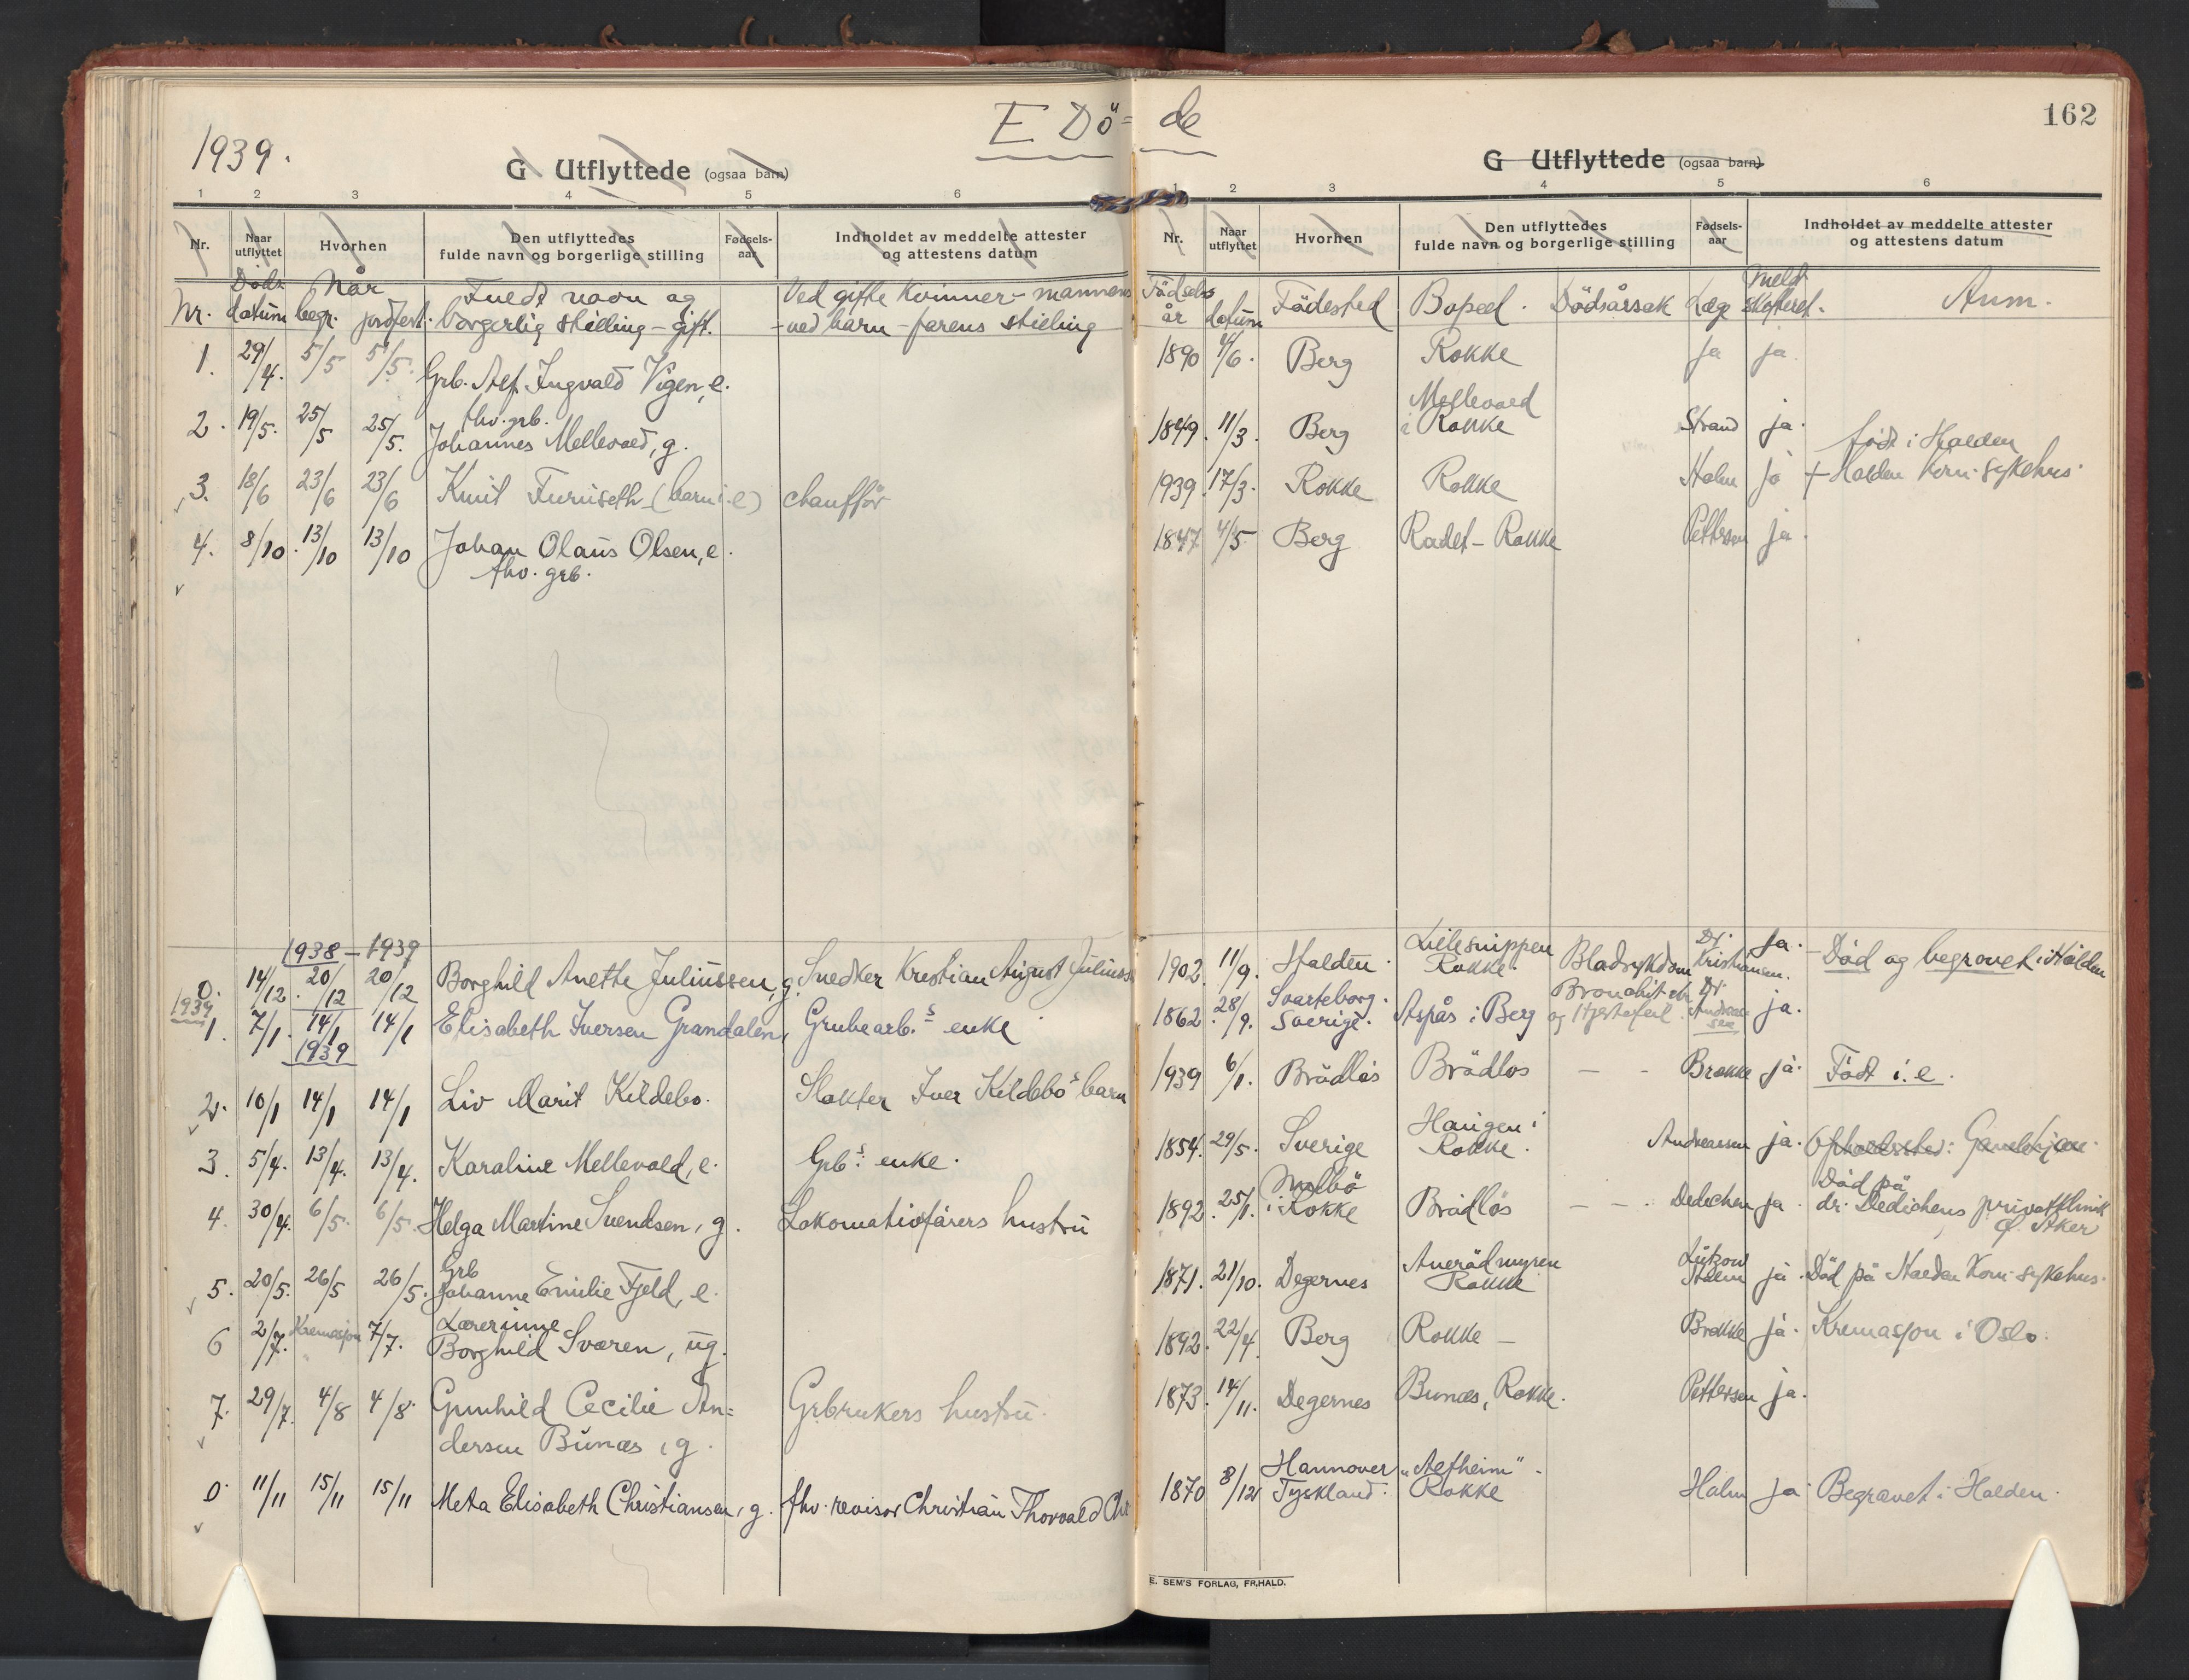 E Dö=de
162
1939.
G Utflyttede (ogsaa barn)
1 2 3 4 5 6
Nr. Naar utflyttet Hvorhen Den utflyttedes fulde navn og borgerlige stilling Fødsels-aar Indholdet av meddelte attester og attestens datum
Nr. Döds datum Når begr. jordfest. Fuldt navn og borgerlig stilling - gift. Ved gifte kvinner - mannens - ved barn - farens stilling
1. 29/4. 5/5 5/5. Grb. Alf Ingvald Vigen, e.
2. 19/5. 25/5 25/5. fhv. grb. Johannes Mellevold, g.
3. 18/6 23/6 23/6 Knut Furuseth (barn i.e) chaufför
4. 8/10. 13/10 13/10 Johan Olaus Olsen, e. fhv. grb.
1938 - 1939
0. 14/12. 20/12 20/12 Borghild Anette Juliussen, g. Snedker Kristian August Juliuss
1939
1. 7/1. 14/1 14/1 Elisabeth Iversen Grandalen, Grubearb.s enke
1939
2. 10/1 14/1 14/1 Liv Marit Kildebo. Slakter Iver Kildebös barn
3. 5/4. 13/4. 13/4. Karoline Mellevold, e. Grb.s enke.
4. 30/4. 6/5. 6/5. Helga Martine Svendsen, g. Lokomotivförers hustru
5. 20/5. 26/5 26/5. Grb Johanne Emilie Fjeld, e.
6 2/7. Kremasjon 7/7. Lærerinne Borghild Sværen, ug.
7. 29/7. 4/8 4/8. Gunhild Cecilie An=
dersen Bunæs, g. Grbrukers hustru.
0. 11/11 15/11 15/11 Meta Elisabeth Christiansen, g. fhv. revisor Christian Thorvald Chr
G Utflyttede (ogsaa barn)
1 2 3 4 5 6
Nr. Naar utflyttet Hvorhen Den utflyttedes fulde navn og borgerlige stilling Fødsels-aar Indholdet av meddelte attester og attestens datum
Födsels år datum Födested Bopæl. Dödsårsak Læge Meldt skifteret. Anm.
1890 4/6. Berg Rokke ja ja.
1849. 11/3. Berg Mellevold i Rokke Strand ja.
1939. 17/3. Rokke Rokke Holm ja födt i Halden + Halden Kom. sykehus.
1847 4/5 Berg Rødet - Rokke Pettersen ja.
1902. 11/9. Halden. Lillesnippen Rokke. Blodsykdom Dr. Kristiansen. Ja. - Död og begravet i Halden
1862. 28/9. Svarteborg. Sverige. Aspås i Berg og Hjertefeil Dr. Andreassen ja.
1939 6/1. Brådlös Brådlös - - Brokke ja. Födt i.e.
1854. 29/5. Sverige Haugen i Rokke. Andreassen ja.
1892. 25/1. i Rokke Brådlös - - . Dedichen ja. Död på dr. Dedichens privatklinik Ø. Aker
1871. 21/10. Degernes Rokke Lützow Holm ja. Död på Halden Kom. sykehus.
1892. 22/4. Berg Rokke - Brokke ja. Kremasjon i Oslo.
1873. 14/11. Degernes Bunæs, Rokke. Pettersen ja.
1870 8/12 Hannover Tyskland. "Alfheim" - Rokke Holm ja Begravet i Halden.
E. SEM'S FORLAG, FR.HALD.